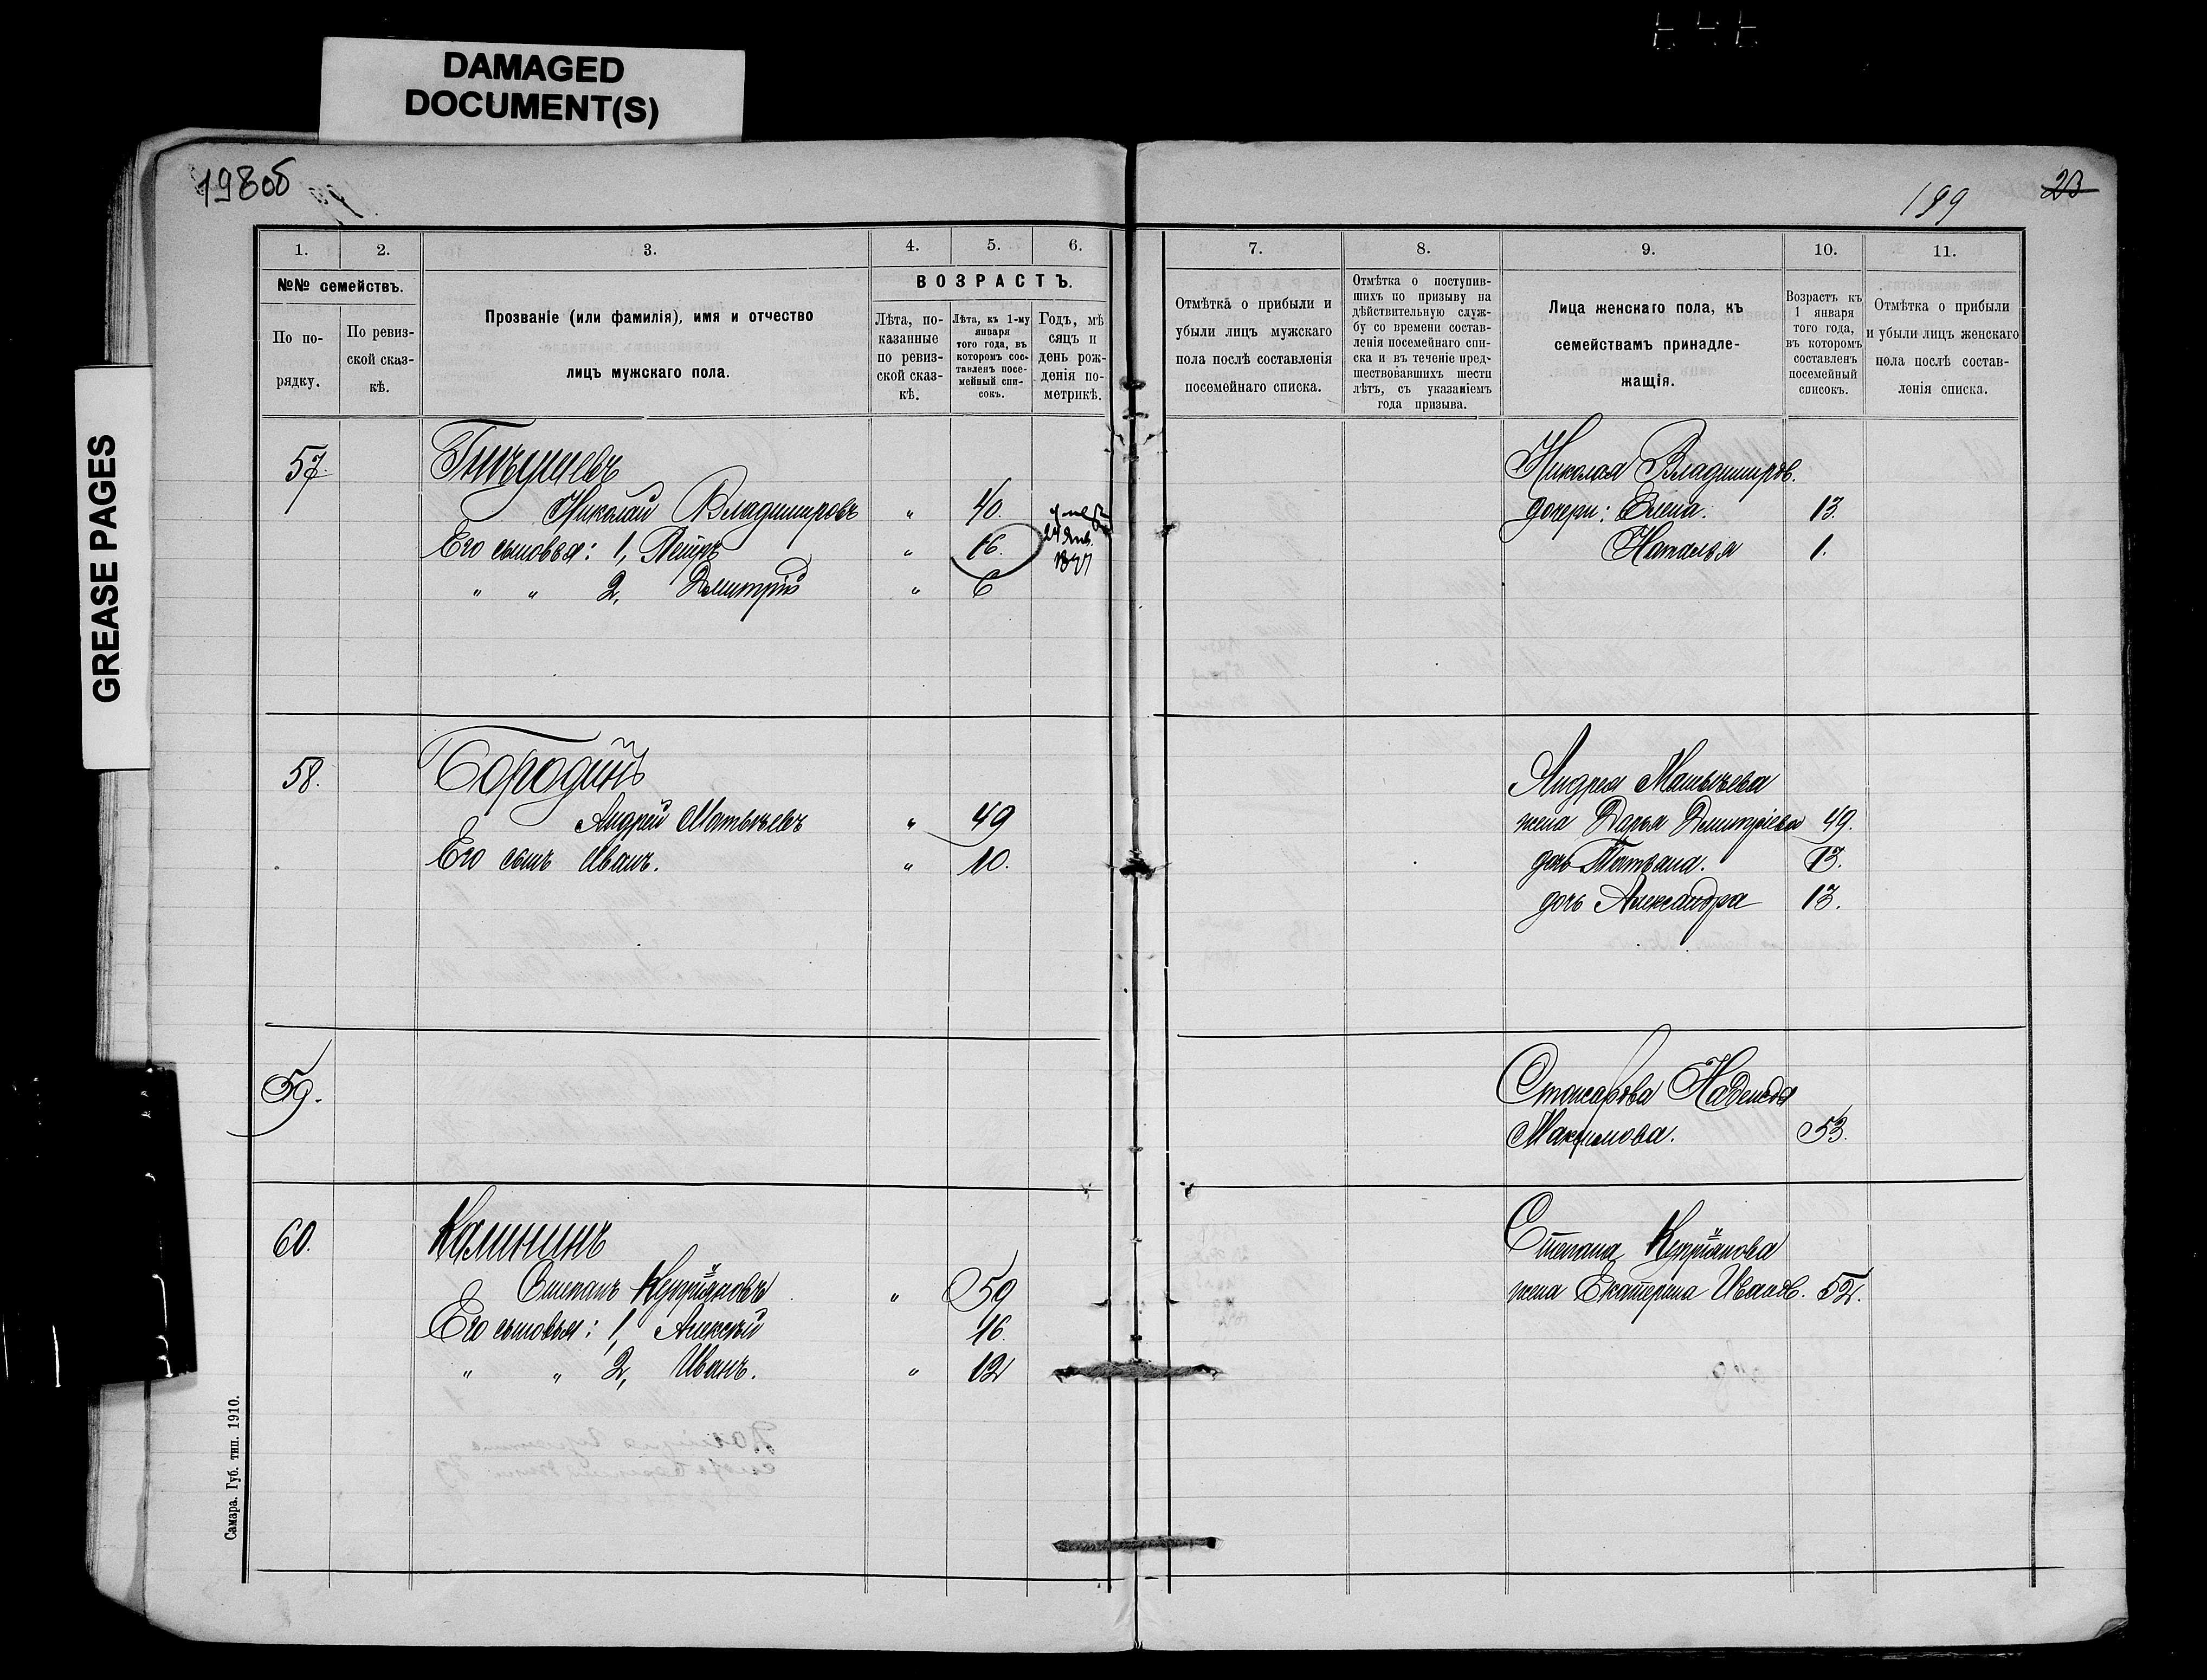 DAMAGED
DOCUMENT(S)
GREASE PAGES
198об
199
23
1.
2.
3.
4.
5.
6.
№№ семействъ.
По по-
рядку.
По ревиз-
ской сказ-
кѣ.
Прозваніе (или фамилія), имя и отчество
лицъ мужскаго пола.
ВОЗРАСТЪ.
Лѣта, по-
казанные
по ревиз-
ской сказ-
кѣ.
Лѣта, къ 1-му
января
того года, въ
которомъ сос-
тавленъ посе-
мейный спи-
сокъ.
Годъ, мѣ
сяцъ и
день рож-
денія по-
метрикѣ.
57.
Николай Владимировъ " 40.
Его сыновья: 1, Петръ " 16.
" " 2, Дмитрій " 6
58.
Бородинъ
Андрей Матвѣевъ " 49
Его сынъ Иванъ. " 10.
59.
60.
Калининъ
Степанъ Купріяновъ " 59
Его сыновья: 1, Алексѣй 16.
" " 2, Иванъ. " 12
Самара. Губ. тип. 1910.
7.
8.
9.
10.
11.
Отмѣтка о прибыли и
убыли лицъ мужскаго
пола послѣ составленія
посемейнаго списка.
Отмѣтка о поступив-
шихъ по призыву на
дѣйствительную служ-
бу со времени состав-
ленія посемейнаго спи-
ска и въ теченіе пред-
шествовавшихъ шести
лѣтъ, съ указаніемъ
года призыва.
Лица женскаго пола, къ
семействамъ принадле-
жащія.
Возрастъ къ
1 января
того года,
въ которомъ
составленъ
посемейный
списокъ.
Отмѣтка о прибыли
и убыли лицъ женскаго
пола послѣ состав-
ленія списка.
Николая Владиміров.
дочери: Елена. 13.
Наталья 1.
Андрея Матвѣева
жена Дарья Дмитріева 49.
дочь Татьяна. 17.
дочь Александра 13.
Надежда
Максимова. 53.
Степана Купріянова
жена Екатерина Иванов. 52.